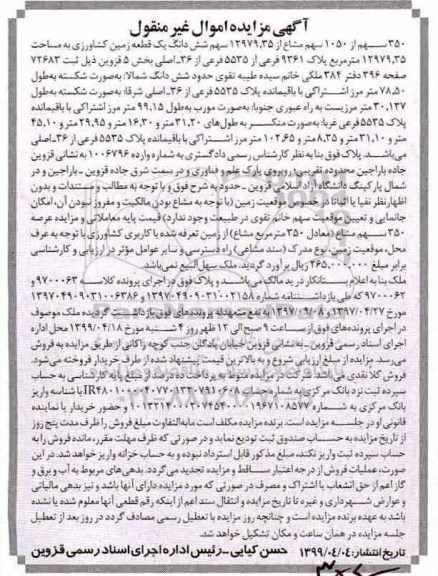 آگهی مزایده اموال غیر منقول
۳۵۰ سهم از ۱۰۵۰ سهم مشاع از ۱۲۹۷۹,۳۵ سهم شش دانگ یک قطعه زمین کشاورزی به مساحت
۱۲۹۷۹,۳۵ مترمربع پلاک ۹۳۶۱ فرعی از ۵۵۳۵ فرعی از ۳۶_اصلی بخش ۵ قزوین ذیل ثبت ۷۲۶۸۳
صفحه ۳۹۶ دفتر ۳۸۴ ملکی خانم سیده طیبه تقوی حدود شش دانگ شمالا: به‌صورت شکسته به‌طول
۷۸,۵۰ متر مرز اشتراکی با باقیمانده پلاک ۵۵۳۵ فرعی از ۳۶_اصلی شرقا: به‌صورت شکسته به‌طول
۳۰,۱۳۷ متر مرزیست به راه عبوری جنوبا: به‌صورت مورب به‌طول ۹۹,۱۵ متر مرز اشتراکی با باقیمانده
پلاک ۵۵۳۵ فرعی غربا: به‌صورت منکسر به طول‌های ۳۱,۲۰ متر و ۱۶,۳۰ متر و ۲۹,۹۵ متر و ۴۵,۱۰
متر و ۳۱,۱۰ متر و ۸,۳۵ متر و ۱۰۲,۶۵ متر مرز اشتراکی با باقیمانده پلاک ۵۵۳۵ فرعی از ۳۶_اصلی
می‌باشد. پلاک فوق بنا به نظر کارشناس رسمی دادگستری به شماره وارده ۱۰۰۶۷۹۶ به نشانی قزوین
جاده باراجین محدوده تقریبی: روبروی پارک علم و فناوری و در سمت شرق جاده قزوین _ باراجین و در
شمال پارکینگ دانشگاه آزاد اسلامی قزوین _ حدود به شرح فوق و با توجه به مطالب و مستندات و بدون
اظهار نظر نفیا یا اثباتا در خصوص موقعیت زمین (با توجه به مشاع بودن مالکیت و مفروز نبودن آن، امکان
جانمایی و تعیین موقعیت سهم خانم تقوی در طبیعت وجود ندارد) قیمت پایه معاملاتی و مزایده عرصه
۳۵۰ سهم مشاع (معادل ۳۵۰ مترمربع مشاع) از زمین تعرفه شده با کاربری کشاورزی با توجه به عرف
محل، موقعیت زمین، نوع مدرک (سند مشاعی) راه دسترسی و سایر عوامل مؤثر در ارزیابی و کارشناسی
برابر مبلغ ۲۶۵,۰۰۰,۰۰۰ ریال برآورد گردید. ملک سهل‌البیع نمی‌باشد.
ملک بنا به اعلام بستانکار در ید مالک می‌باشد و پلاک فوق در اجرای پرونده کلاسه ۹۷۰۰۰۶۳ و
۹۷۰۰۰۶۲ که طی بازداشتنامه شماره ۱۳۹۷۰۴۹۰۹۰۳۱۰۰۲۱۵۸ و ۱۳۹۷۰۴۹۰۹۰۳۱۰۰۶۳۸۶
مورخ ۱۳۹۷/۰۴/۲۷ و ۱۳۹۷/۰۹/۰۸ به نفع متعهدله پرونده‌های فوق بازداشت گردیده ملک موصوف
در اجرای پرونده‌های فوق از ساعت ۹ صبح الی ۱۲ ظهر روز ۴ شنبه مورخ ۱۳۹۹/۰۴/۱۸ محل اداره
اجرای اسناد رسمی قزوین _ به نشانی قزوین خیابان پادگان جنب کوچه زاکانی از طریق مزایده به فروش
می‌رسد. مزایده از مبلغ ارزیابی شروع و به بالاترین قیمت پیشنهاد شده از طرف خریدار فروخته می‌شود.
فروش کلا نقدی می‌باشد. شرکت در مزایده منوط به پرداخت ده درصد از مبلغ پایه کارشناسی به حساب
سپرده ثبت نزد بانک مرکزی به شماره حساب با شناسه واریز
بانک مرکزی به شماره و حضور خریدار یا نماینده
قانونی او در جلسه مزایده است. برنده مزایده مکلف است مابه‌التفاوت مبلغ فروش را ظرف مدت پنج روز
از تاریخ مزایده به حساب صندوق ثبت تودیع نماید و در صورتی که ظرف مهلت مقرر، مانده فروش را به
حساب سپرده ثبت واریز نکند، مبلغ مذکور قابل استرداد نبوده و به حساب خزانه واریز خواهد شد. در این
صورت، عملیات فروش از درجه اعتبار ساقط و مزایده تجدید می‌گردد. بدهی‌های مربوط به آب و برق و
گاز اعم از حق انشعاب یا اشتراک و مصرف در صورتی که مورد مزایده دارای آنها باشد و نیز بدهی مالیاتی
و عوارض شهرداری و غیره تا تاریخ مزایده و انتقال سند اعم از اینکه رقم قطعی آنها معلوم شده یا نشده
باشد به عهده برنده مزایده است و چنانچه روز مزایده با تعطیل رسمی مصادف گردد در روز بعد از تعطیل
جلسه مزایده در همان ساعت و مکان تشکیل خواهد شد.
تاریخ انتشار: ۱۳۹۹/۰۴/۰۴ حسن کیایی _ رئیس اداره اجرای اسناد رسمی قزوین